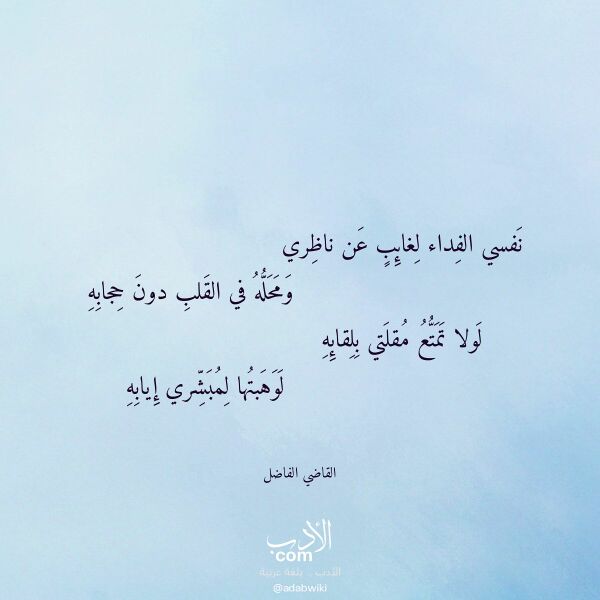 نَفسي الفِداء لِغائِبٍ عَن ناظِري
وَمَحَلُّهُ في القَلبِ دونَ حِجابِهِ
لَولا تَمَتُّعُ مُقلَتي بِلِقائِهِ
لَوَهَبتُها لِمُبَشِّري إِيابِهِ
القاضي الفاضل
الأدب
com
الأدب .. بلغة عربية
@adabwiki